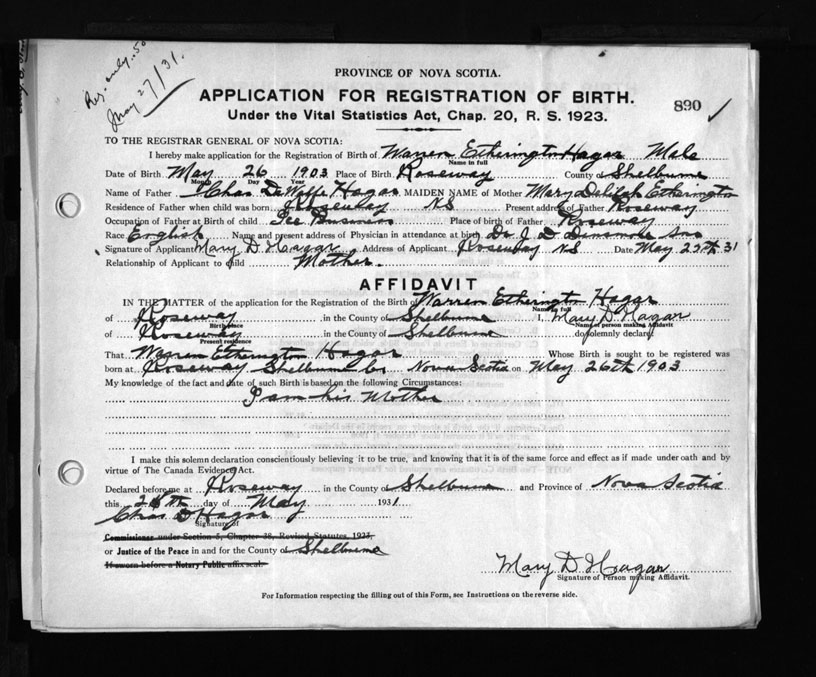 Reg. only .50
May 27/31.
PROVINCE OF NOVA SCOTIA.
APPLICATION FOR REGISTRATION OF BIRTH.
890 ✓
Under the Vital Statistics Act, Chap. 20, R. S. 1923.
TO THE REGISTRAR GENERAL OF NOVA SCOTIA:
I hereby make application for the Registration of Birth of Warren Etherington Hagar Male
Name in full
Date of Birth May 26 1903 Place of Birth Roseway County of Shelburne
Month Day Year
Name of Father Chas DeWolfe Hagar MAIDEN NAME of Mother Mary Delilah Etherington
Residence of Father when child was born Roseway NS Present address of Father Roseway
Occupation of Father at Birth of child Ice Business Place of birth of Father Roseway
Race English Name and present address of Physician in attendance at birth Dr. J. D. Densmore
Signature of Applicant Mary D Hagar Address of Applicant Roseway NS Date May 25th 31
Relationship of Applicant to child Mother.
AFFIDAVIT
IN THE MATTER of the application for the Registration of the Birth of Warren Etherington Hagar
Name in full
of Roseway in the County of Shelburne I, Mary D Hagar
Birth place Name of person making Affidavit
of Roseway in the County of Shelburne do solemnly declare:
Present residence
That Warren Etherington Hagar Whose Birth is sought to be registered was
born at Roseway Shelburne Co Nova Scotia on May 26th 1903
My knowledge of the fact and date of such Birth is based on the following Circumstances:
I am his Mother
I make this solemn declaration conscientiously believing it to be true, and knowing that it is of the same force and effect as if made under oath and by
virtue of The Canada Evidence Act.
Declared before me at Roseway in the County of Shelburne and Province of Nova Scotia
this 26th day of May 1931
Chas D Hagar
Signature of
Commissioner under Section 5, Chapter 38, Revised Statutes, 1923,
or Justice of the Peace in and for the County of Shelburne
If sworn before a Notary Public affix seal.
Mary D Hagar
Signature of Person making Affidavit.
For Information respecting the filling out of this Form, see Instructions on the reverse side.